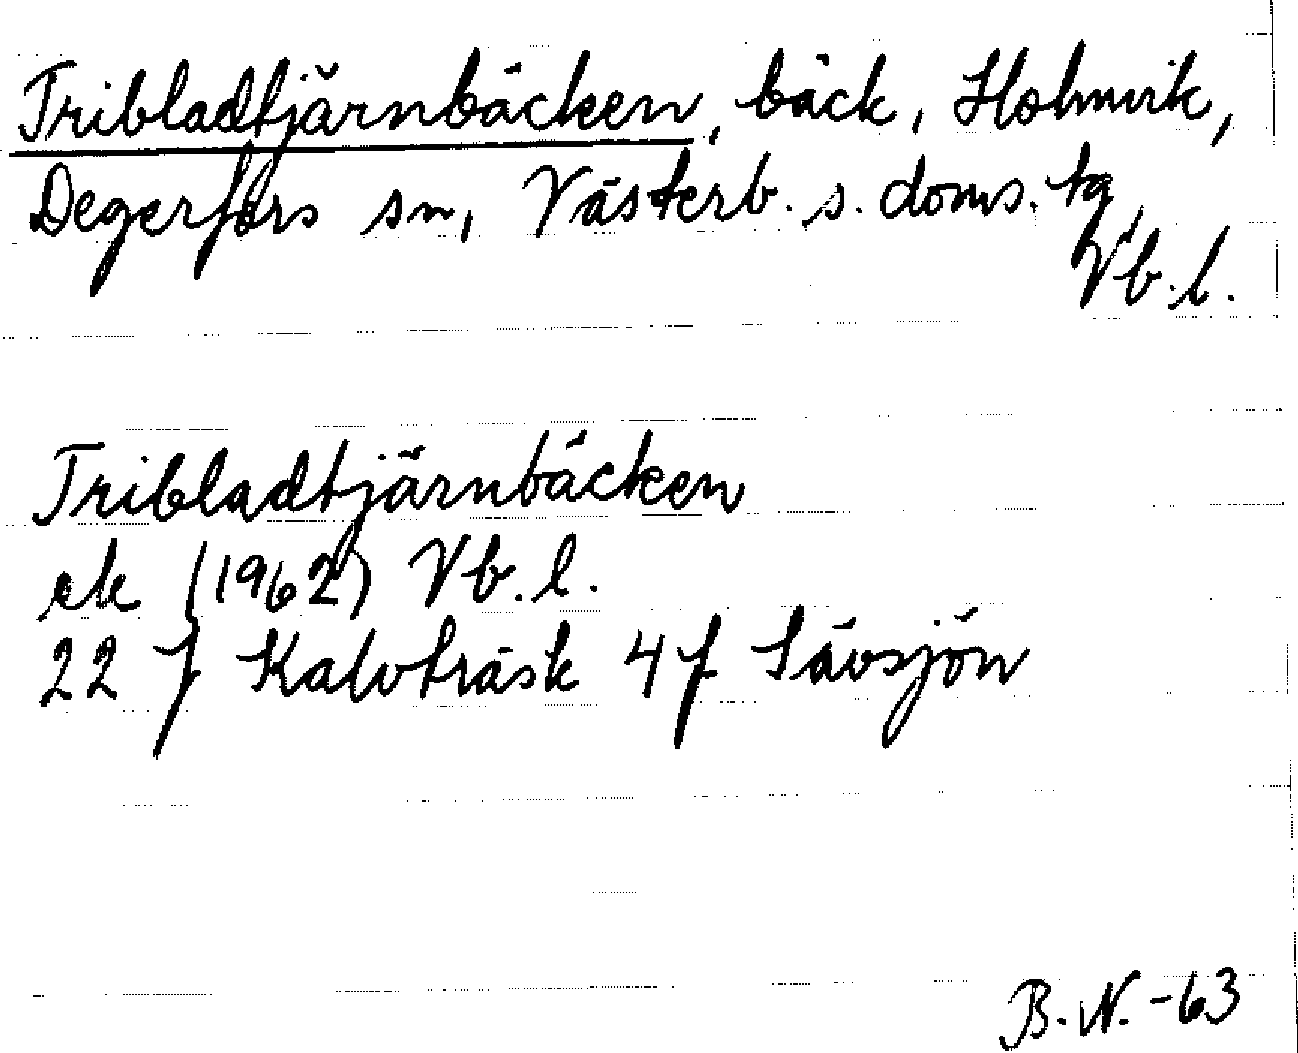 Tribladtjärnbäcken, bäck, Holmvik,
Degerfors sn, Västerb. s. doms. tg,
Vb. l.
Tribladtjärnbäcken
ek (1962) Vb. l.
22 J Kalvträsk 4 f Sävsjön
B. N. -63